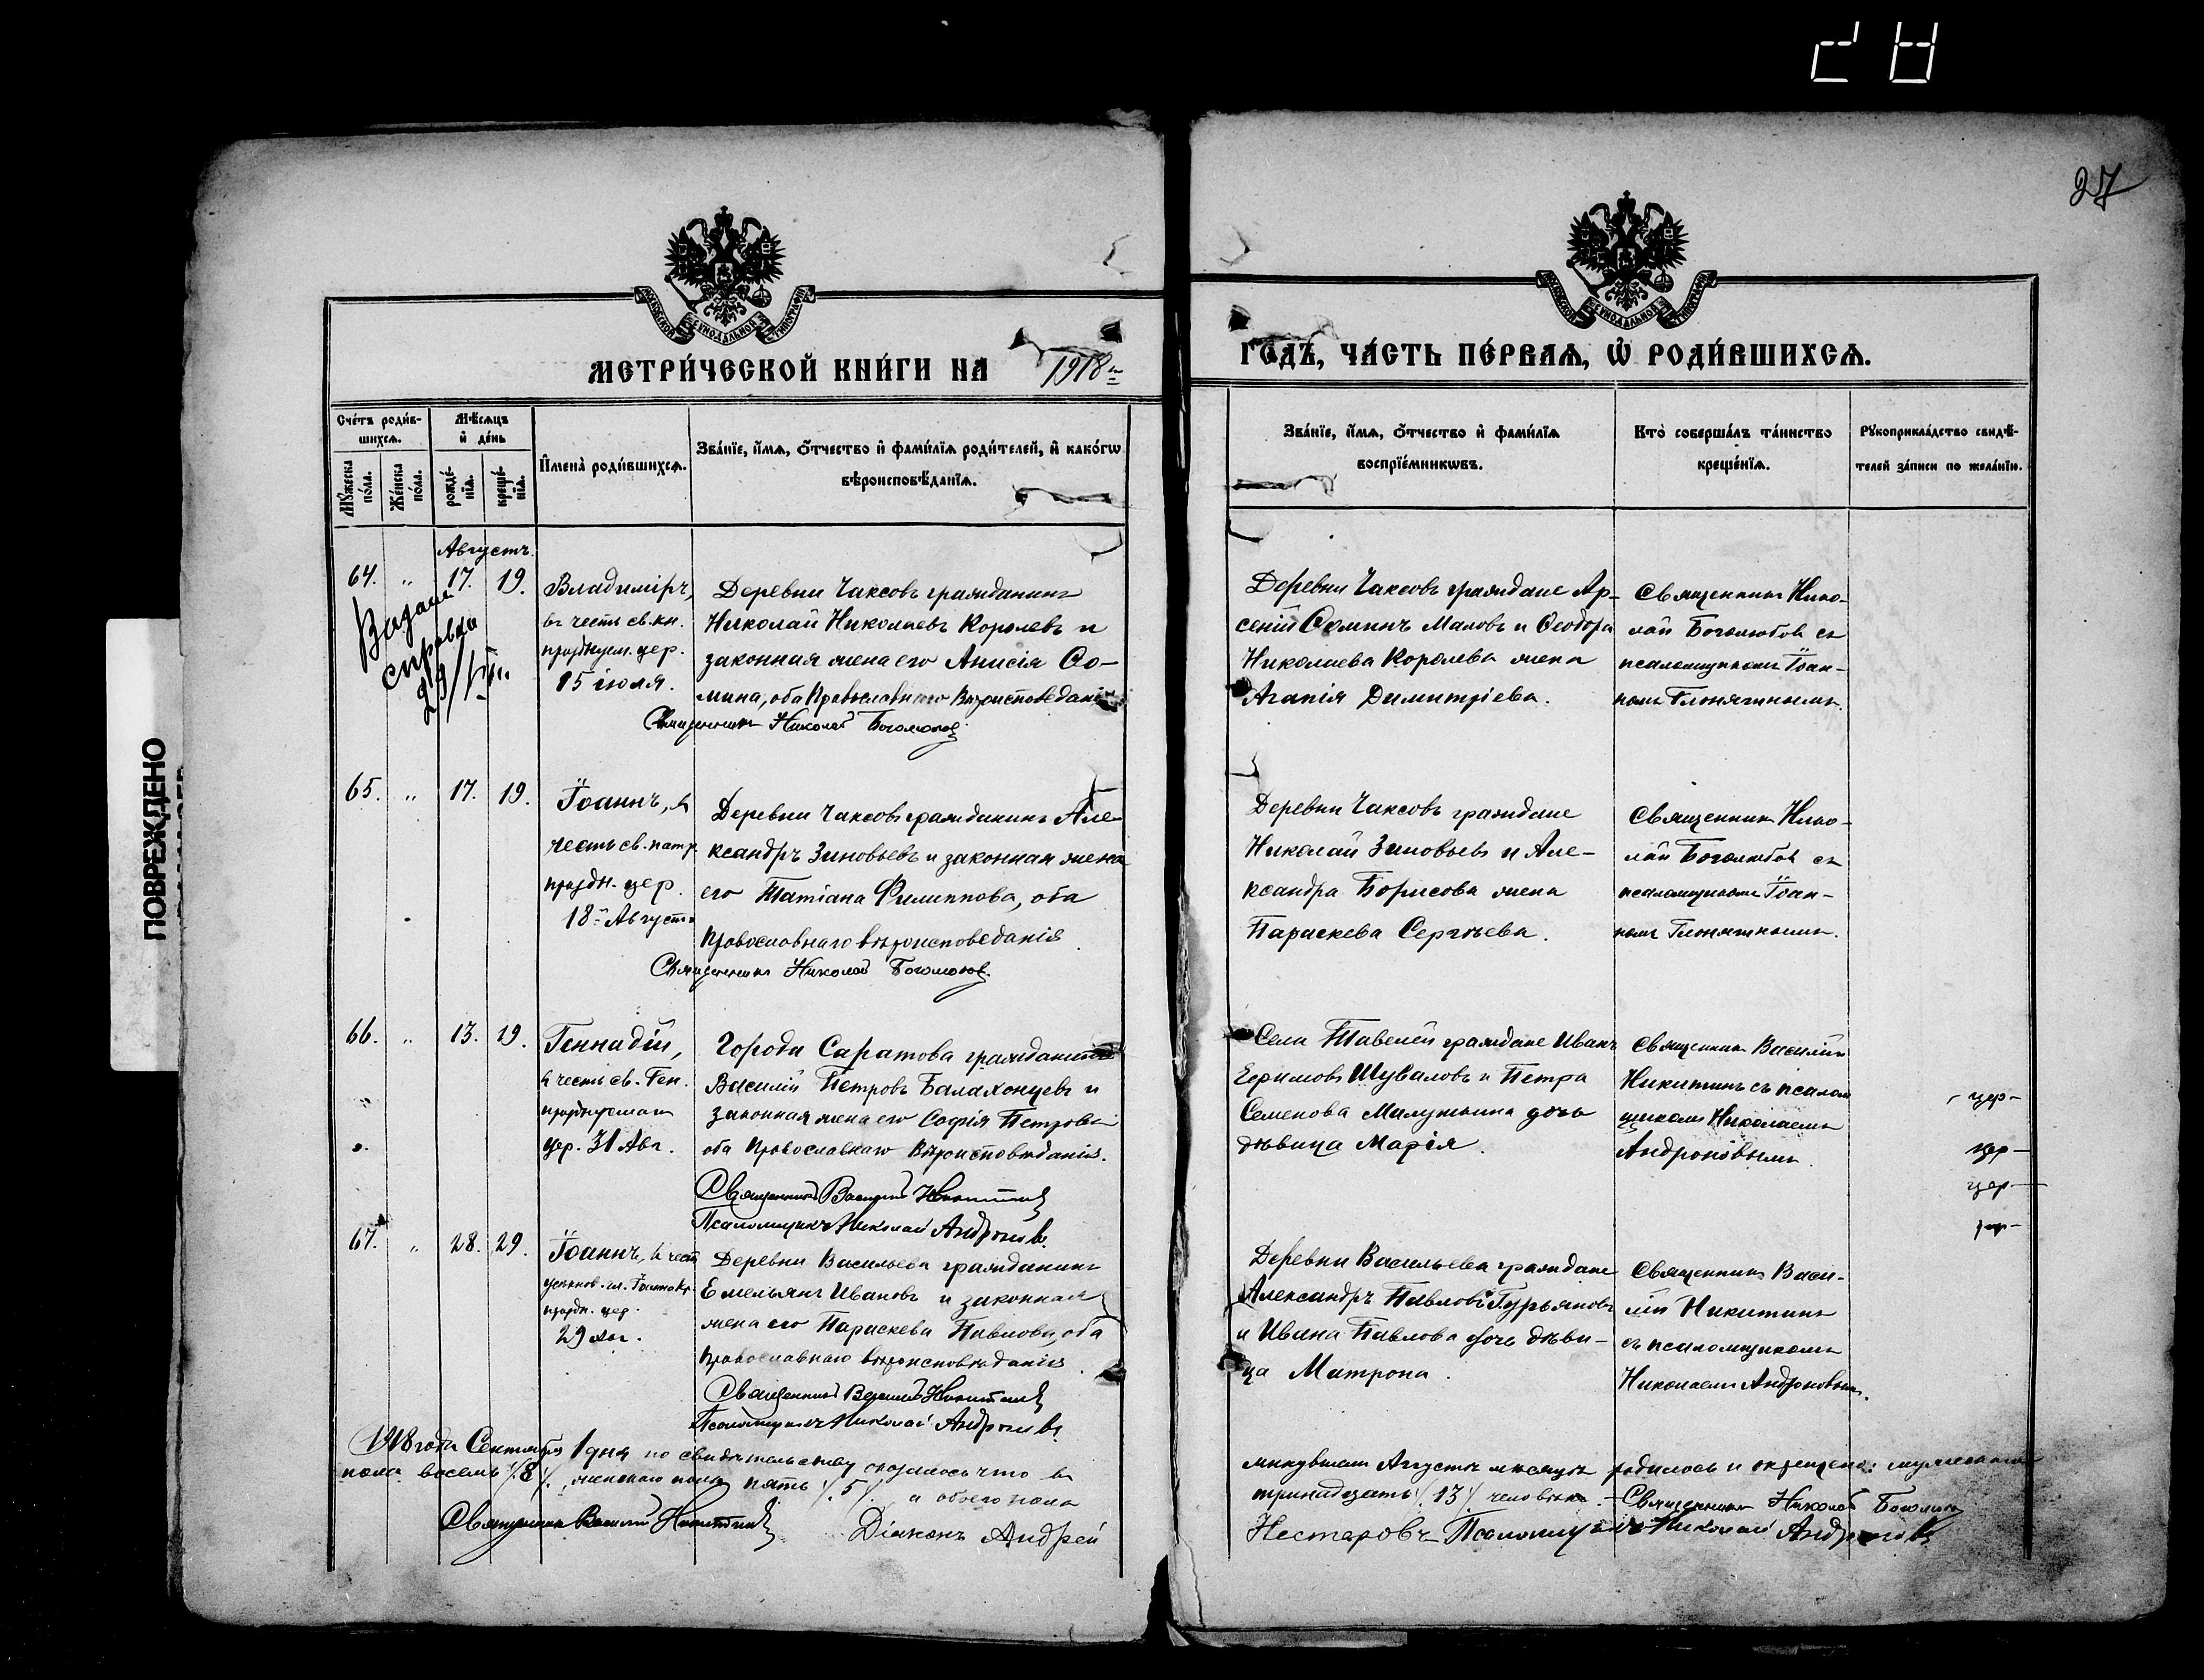 27
ПОВРЕЖДЕНО
МЕТРИ́ЧЕСКОЙ КНИ́ГИ НА 1918 ГО́ДЪ, ЧА́СТЬ ПЕ́РВАѦ, Ѡ҆ РОДИ́ВШИХСѦ.
Сче́тъ роди́в-
шихсѧ.
Мѣ́сѧцъ
и҆ де́нь
И҆мена̀ роди́вшихсѧ.
Зва́нїе, и҆́мѧ, ѻ҆́тчество и҆ фами́лїѧ роди́телей, и҆ како́гѡ
вѣроисповѣ́данїѧ.
Мꙋ́жеска
по́ла.
Же́нска
по́ла.
рожде́-
нїѧ.
креще́-
нїѧ.
Зва́нїе, и҆́мѧ, ѻ҆́тчество и҆ фами́лїѧ
воспрїе́мникѡвъ.
Кто̀ соверша́лъ та́инство
креще́нїѧ.
Рꙋкоприкла́дство свидѣ́-
телей за́писи по жела́нїю.
Августъ.
64. " 17. 19.
Владиміръ,
въ честь св. кн.
празднуем. цер.
15 іюля.
Деревни Чаксовъ гражданинъ
Николай Николаевъ Королевъ и
законная жена его Анисія Ѳо-
мина, оба Православнаго Вѣроисповеданія
Священникъ Николай Боголюбов
Деревни Чаксовъ граждане Ар-
сеній Ѳоминъ Маловъ и Ѳеодора
Николаева Королева жена
Агапія Димитріева.
Священникъ Нико-
лай Боголюбовъ съ
псаломщикомъ Іоан-
номъ
справка
65. " 17. 19.
Іоаннъ, въ
честь св. патр.
праздн. цер.
18 Августа
Деревни Чаксовъ гражданинъ Але-
ксандръ Зиновьевъ и законная жена
его Татіана Филиппова, оба
Православнаго вѣроисповеданія.
Священникъ Николай Боголюбов.
Деревни Чаксовъ граждане
Николай Зиновьевъ и Але-
ксандра Борисова жена
Параскева Сергѣева.
Священникъ Нико-
лай Боголюбовъ съ
псаломщикомъ Іоан-
номъ
66. " 13. 19.
Геннадій,
въ честь св. Ген.
празднуемаго
цер. 31 Авг.
Города Саратова гражданинъ
Василій Петровъ Балахонцевъ и
законная жена его Софія Петрова
оба Православнаго Вѣроисповѣданія.
Священникъ Василій Никитин
Псаломщикъ Николай Андронов.
Села Тавелей граждане Иванъ
Ефимовъ Шуваловъ и Петра
Семенова дочь
дѣвица Марія.
Священникъ Василій
Никитинъ съ псалом
щикомъ Николаемъ
Андроновымъ.
цер-
цер-
цер-
цер-
67. " 28. 29.
Іоаннъ, въ честь
усѣкнов. гл. Іоанна Кр.
праздн. цер.
29 авг.
Деревни Васильева гражданинъ
Емельянъ Ивановъ и законная
жена его Параскева Павлова, оба
Православнаго вѣроисповѣданія
Священникъ Василій Никитин
Псаломщикъ Николай Андронов.
Деревни Васильева граждане
Александръ Павловъ Гурьяновъ
и Ивана Павлова дочь дѣви-
ца Матрона.
Священникъ Васи-
лій Никитинъ
съ псаломщикомъ
Николаемъ Андроновымъ.
1918 года Сентября 1 дня по свидѣтельству оказалось что въ минувшемъ Августѣ мѣсяцѣ родилось и окрещено: мужескаго
пола восемь /8/, женскаго пола пять /5/ и обоего пола тринадцать /13/ человѣкъ. Священникъ Николай Боголюбов
Священникъ Василій Никитин Діаконъ Андрей Нестеровъ Псаломщикъ Николай Андронов